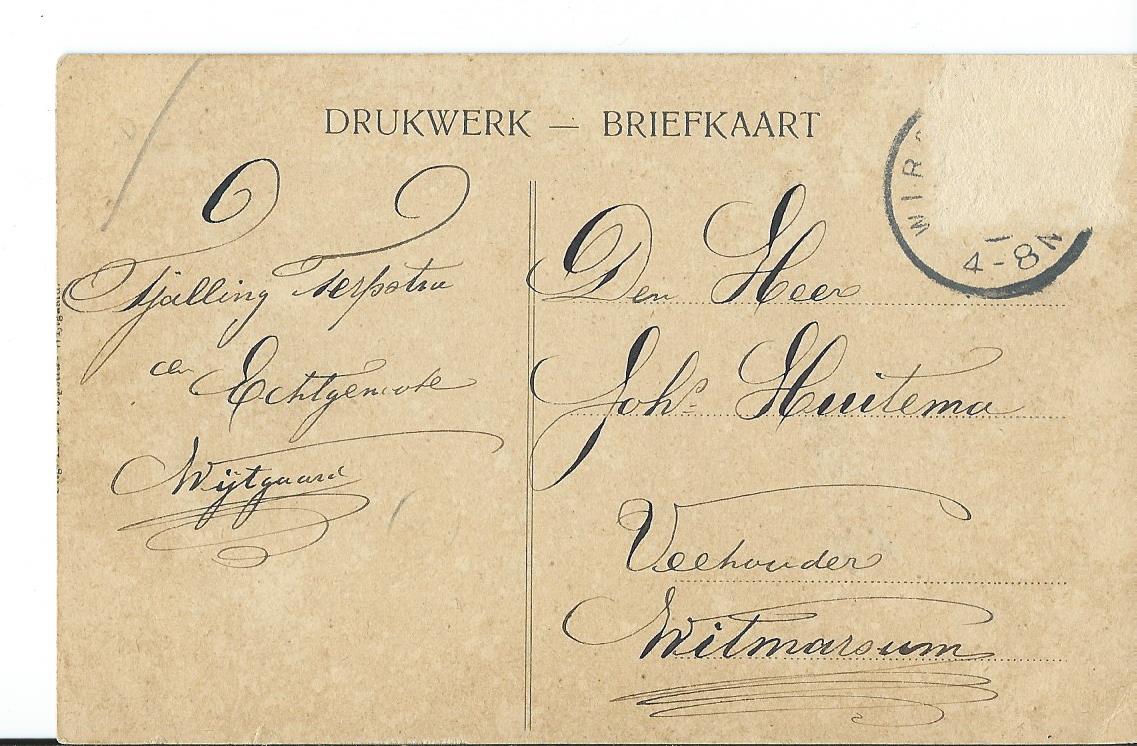 DRUKWERK — BRIEFKAART
Tjalling Terpstra
en Echtgenoote
Wijtgaard
Den Heer
Johs Huitema
Veehouder
Witmarsum
WIR
4-8N